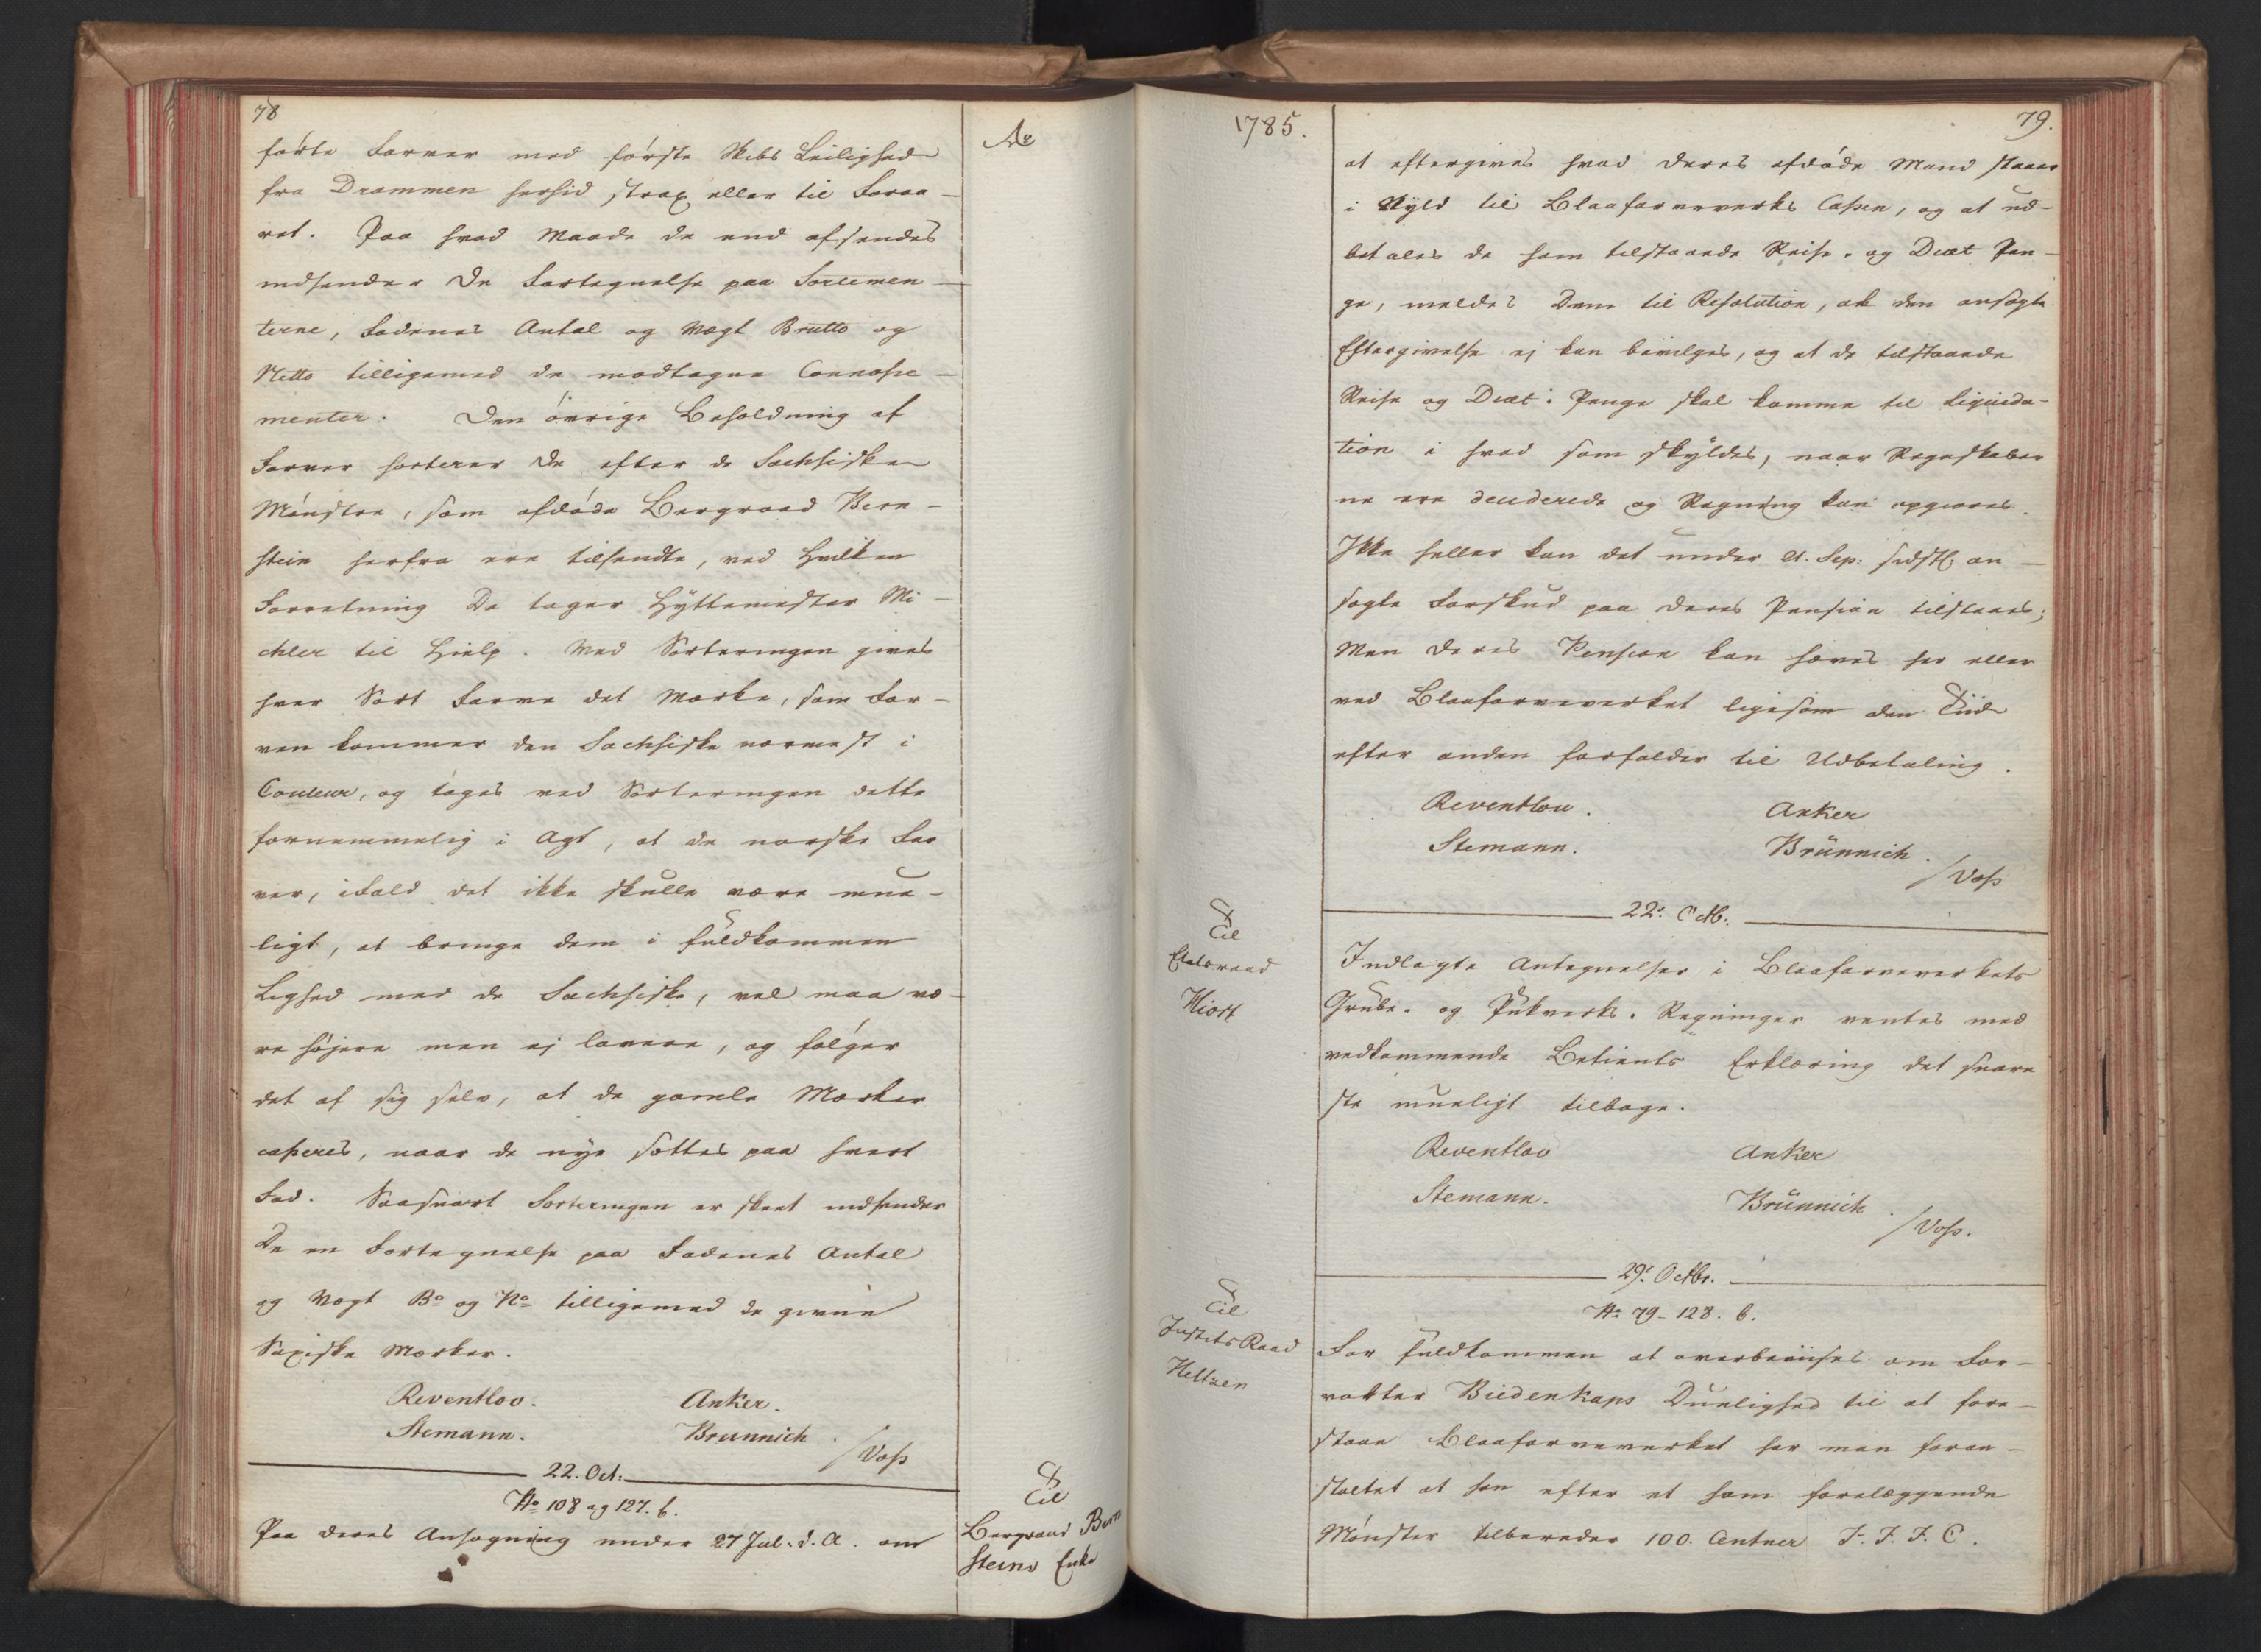 78
førte Farver med første Skibs Leilighed
fra Drammen herhid strax eller til Foraa-
ret. Paa hvad Maade de end afsendes
indsender De Fortegnelse paa Sortemen-
terne, Fadenes Antal og Vægt Brutto og
Netto tilligemed de modtagne Connosse-
menter. Den øvrige Beholdning af
Farver sorterer De efter de Sachsiske
Mønstre, som afdøde Bergraad Bern-
stein herfra ere tilsendte, ved hvilken
Forretning De tager Hyttemester Mi-
chler til Hielp. Ved Sorteringen gives
hver Sort Farve det Mærke, som Far-
ven kommer den Sachsiske nærmest i
Couleur, og tages ved Sorteringen dette
fornemmelig i Agt, at de norske Far
ver, ifald det ikke skulle være mue-
ligt, at bringe dem i fuldkommen
Lighed med de Sachsiske, vel maa væ-
re høiere men ej lavere, og følger
det af sig selv, at de gamle Mærker
casseres, naar de nye sættes paa hvert
Fad. Saasnart Sorteringen er skeet indsender
De en Fortegnelse paa Fadenes Antal
og Vægt Bo og No tilligemed de givne
Saxiske Mærker.
Reventlov. Anker.
Stemann. Brunnich.
/Voss
22. Oct.
No 108 og 127. b.
Paa deres Ansøgning under 27 Jul. d. A. om
Ao
Til
Bergraad Bern
steins Enke
1785.
79.
at eftergives hvad deres afdøde Mand staaer
i Skyld til Blaafarveverks Cassen, og at ud-
betales de ham tilstaaede Reise- og Diæt Pen-
ge, meldes Dem til Resolution, at den ansøgte
Eftergivelse ej kan bevilges, og at de tilstaaede
Reise og Diæt-Penge skal komme til Liqvida-
tion i hvad som skyldes, naar Regnskaber
ne ere deciderede og Regning kan opgiøres.
Ikke heller kan det under 21. Sep. sidstl. an-
søgte Forskud paa deres Pension tilstaaes;
Men deres Pension kan hæves her eller
ved Blaafarveverket ligesom den Tiid
efter anden forfalder til Udbetaling.
Reventlou. Anker
Stemann. Brünnich.
/Voss
22de Octb.
Til
Etatsraad
Hiort
Indlagte Antegnelser i Blaafarveverkets
Grube- og Pukverks-Regninger ventes med
vedkommende Betients Erklæring det snare
ste mueligt tilbage.
Reventlov Anker
Stemann. Brünnich.
/Voss.
29de Octbr.
No 79-128. b.
Til
JustitsRaad
Heltzen
For fuldkommen at overbeviises om For-
valter Biedenkaps Duelighed til at fore-
staae Blaafarveverket har man foran-
staltet at han efter et ham forelæggende
Mønster tilbereder 100. Centner F. F. F. C.